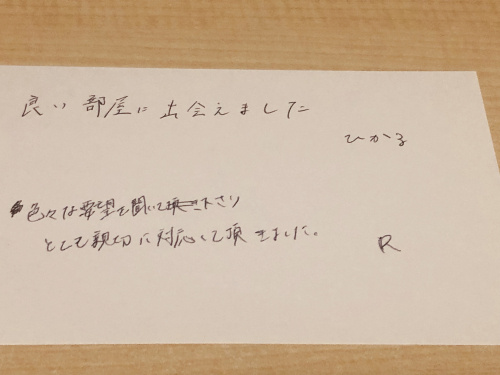 良い部屋に出会えました
ひかる
色々な要望を聞いて下さり
とても親切に対応して頂きました。
R